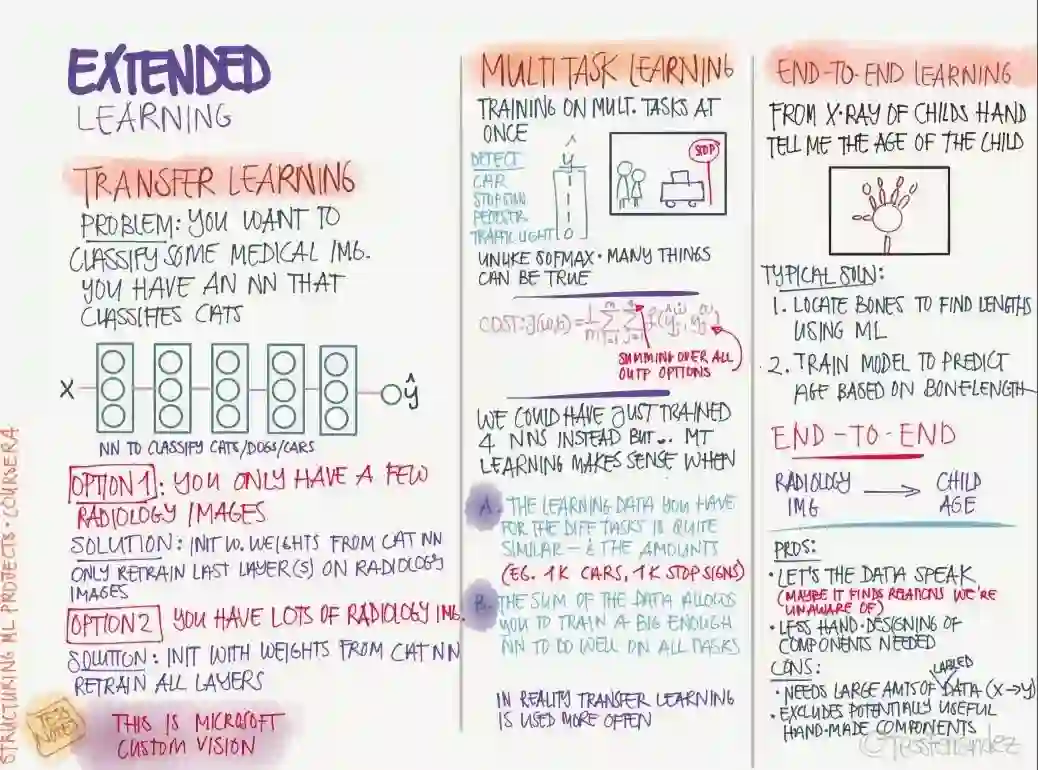 EXTENDED
LEARNING
TRANSFER LEARNING
PROBLEM: YOU WANT TO
CLASSIFY SOME MEDICAL IMG.
YOU HAVE AN NN THAT
CLASSIFIES CATS
X
ŷ
NN TO CLASSIFY CATS/DOGS/CARS
OPTION 1: YOU ONLY HAVE A FEW
RADIOLOGY IMAGES
SOLUTION: INIT W. WEIGHTS FROM CAT NN
ONLY RETRAIN LAST LAYER(S) ON RADIOLOGY
IMAGES
OPTION 2 YOU HAVE LOTS OF RADIOLOGY IMG.
SOLUTION: INIT WITH WEIGHTS FROM CAT NN
RETRAIN ALL LAYERS
THIS IS MICROSOFT
CUSTOM VISION
STRUCTURING ML PROJECTS · COURSERA
TESS
NOTES
MULTITASK LEARNING
TRAINING ON MULT. TASKS AT
ONCE
DETECT
ŷ
CAR
STOPSIGN
PEDESTR.
TRAFFIC LIGHT
0
STOP
UNLIKE SOFMAX · MANY THINGS
CAN BE TRUE
COST: J(w,b) =
SUMMING OVER ALL
OUTP OPTIONS
WE COULD HAVE JUST TRAINED
4 NNS INSTEAD BUT... MT
LEARNING MAKES SENSE WHEN
A. THE LEARNING DATA YOU HAVE
FOR THE DIFF TASKS IS QUITE
SIMILAR - & THE AMOUNTS
(EG. 1K CARS, 1K STOP SIGNS)
B. THE SUM OF THE DATA ALLOWS
YOU TO TRAIN A BIG ENOUGH
NN TO DO WELL ON ALL TASKS
IN REALITY TRANSFER LEARNING
IS USED MORE OFTEN
END-TO-END LEARNING
FROM X-RAY OF CHILDS HAND
TELL ME THE AGE OF THE CHILD
TYPICAL SOLN:
1. LOCATE BONES TO FIND LENGTHS
USING ML
2. TRAIN MODEL TO PREDICT
AGE BASED ON BONELENGTH
END-TO-END
RADIOLOGY → CHILD
IMG AGE
PROS:
· LET'S THE DATA SPEAK
(MAYBE IT FINDS RELATIONS WE'RE
UNAWARE OF)
· LESS HAND-DESIGNING OF
COMPONENTS NEEDED
CONS:
LABLED
· NEEDS LARGE AMTS OF DATA (X→Y)
· EXCLUDES POTENTIALLY USEFUL
HAND-MADE COMPONENTS
©TessFerrandez